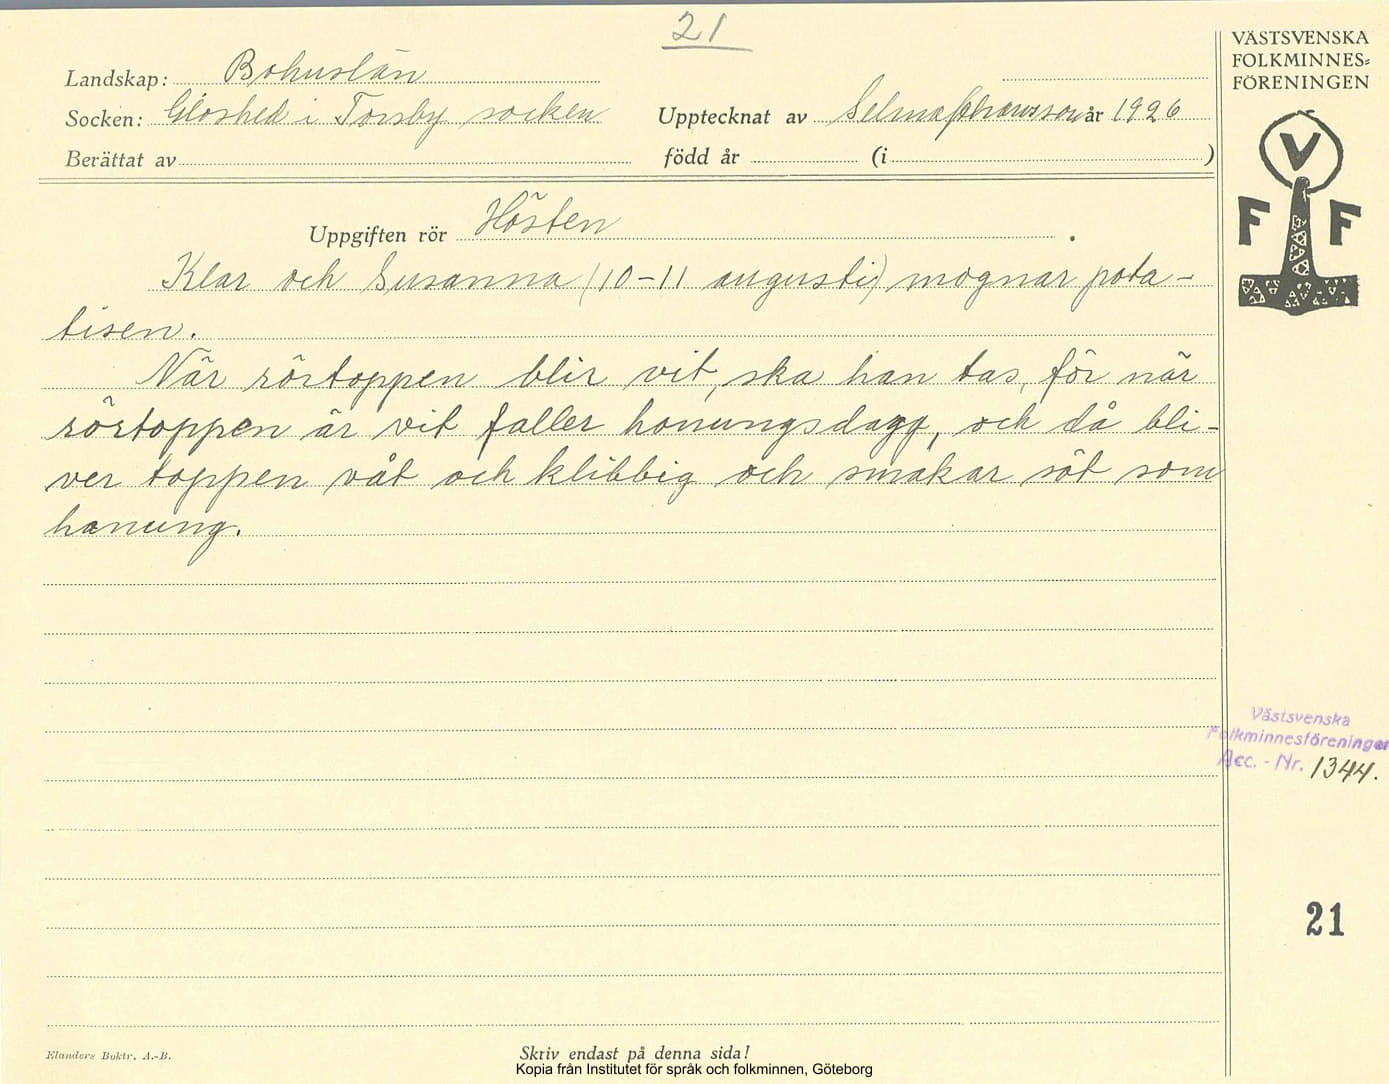 21
VÄSTSVENSKA
FOLKMINNES=
FÖRENINGEN
V
F F
Landskap: Bohuslän
Socken: Gloshed i Torsby socken Upptecknat av Selma Johansson år 1926
Berättat av född år (i )
Uppgiften rör Hösten .
Klar och Susanna (10-11 augusti) mognar pota-
tisen.
När rörtoppen blir vit, ska han tas, för när
rörtoppen är vit faller honungsdagg, och då bli-
ver toppen våt och klibbig och smakar söt som
honung.
Västsvenska
Folkminnesföreningen
Acc. - Nr. 1344.
21
Elanders Boktr. A.-B.
Skriv endast på denna sida!
Kopia från Institutet för språk och folkminnen, Göteborg